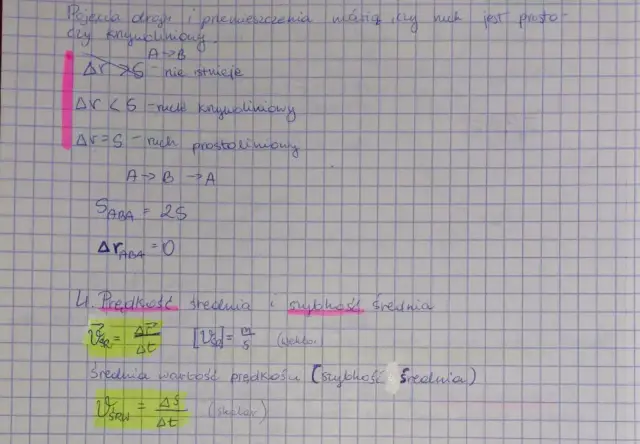 Pojęcia drogi i przemieszczenia mówią, czy ruch jest prosto-
czy krzywoliniowy.
A→B
Δr > S - nie istnieje
Δr < S - ruch krzywoliniowy
Δr = S - ruch prostoliniowy
A→B →A
S_ABA = 2S
Δr_ABA = 0
4. Prędkość średnia i szybkość średnia
v⃗_śr = Δr⃗/Δt [v_śr] = m/s (wektor)
Średnia wartość prędkości (szybkość średnia)
v_śrw = Δs/Δt (skalar)